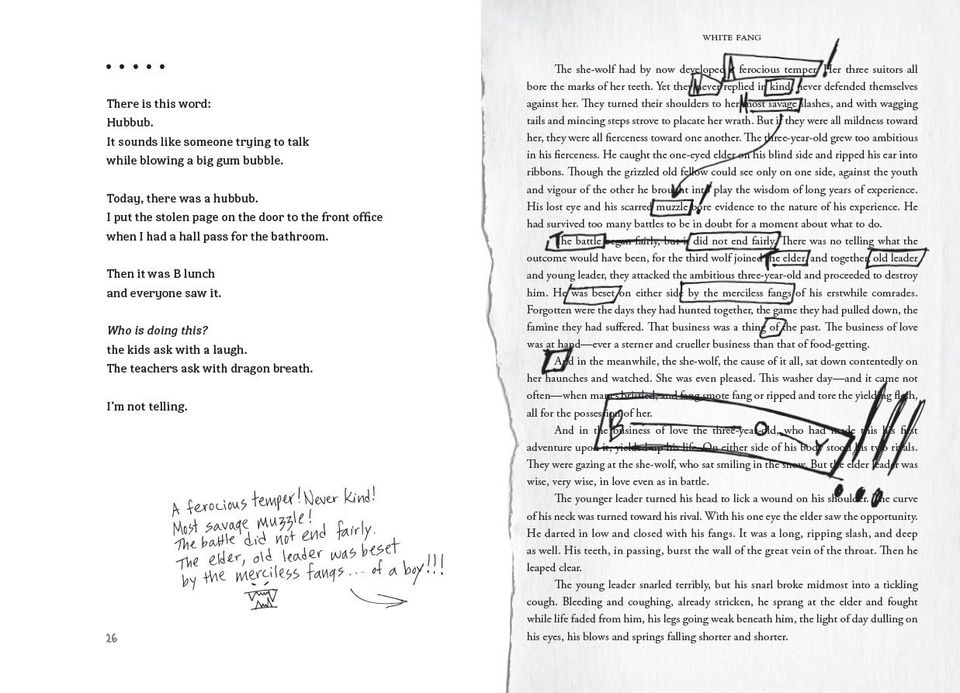 • • • • •
There is this word:
Hubbub.
It sounds like someone trying to talk
while blowing a big gum bubble.
Today, there was a hubbub.
I put the stolen page on the door to the front office
when I had a hall pass for the bathroom.
Then it was B lunch
and everyone saw it.
Who is doing this?
the kids ask with a laugh.
The teachers ask with dragon breath.
I'm not telling.
A ferocious temper! Never kind!
Most savage muzzle!
The battle did not end fairly.
The elder, old leader was beset
by the merciless fangs... of a boy!!!
26
WHITE FANG
The she-wolf had by now developed a ferocious temper. Her three suitors all
bore the marks of her teeth. Yet they never replied in kind, never defended themselves
against her. They turned their shoulders to her most savage slashes, and with wagging
tails and mincing steps strove to placate her wrath. But if they were all mildness toward
her, they were all fierceness toward one another. The three-year-old grew too ambitious
in his fierceness. He caught the one-eyed elder on his blind side and ripped his ear into
ribbons. Though the grizzled old fellow could see only on one side, against the youth
and vigour of the other he brought into play the wisdom of long years of experience.
His lost eye and his scarred muzzle bore evidence to the nature of his experience. He
had survived too many battles to be in doubt for a moment about what to do.
The battle began fairly, but it did not end fairly. There was no telling what the
outcome would have been, for the third wolf joined the elder, and together, old leader
and young leader, they attacked the ambitious three-year-old and proceeded to destroy
him. He was beset on either side by the merciless fangs of his erstwhile comrades.
Forgotten were the days they had hunted together, the game they had pulled down, the
famine they had suffered. That business was a thing of the past. The business of love
was at hand—ever a sterner and crueller business than that of food-getting.
And in the meanwhile, the she-wolf, the cause of it all, sat down contentedly on
her haunches and watched. She was even pleased. This washer day—and it came not
often—when manes bristled, and fang smote fang or ripped and tore the yielding flesh,
all for the possession of her.
BOY!!!
And in the business of love the three-year-old, who had made this his first
adventure upon it, yielded up his life. On either side of his body stood his two rivals.
They were gazing at the she-wolf, who sat smiling in the snow. But the elder leader was
wise, very wise, in love even as in battle.
The younger leader turned his head to lick a wound on his shoulder. The curve
of his neck was turned toward his rival. With his one eye the elder saw the opportunity.
He darted in low and closed with his fangs. It was a long, ripping slash, and deep
as well. His teeth, in passing, burst the wall of the great vein of the throat. Then he
leaped clear.
The young leader snarled terribly, but his snarl broke midmost into a tickling
cough. Bleeding and coughing, already stricken, he sprang at the elder and fought
while life faded from him, his legs going weak beneath him, the light of day dulling on
his eyes, his blows and springs falling shorter and shorter.